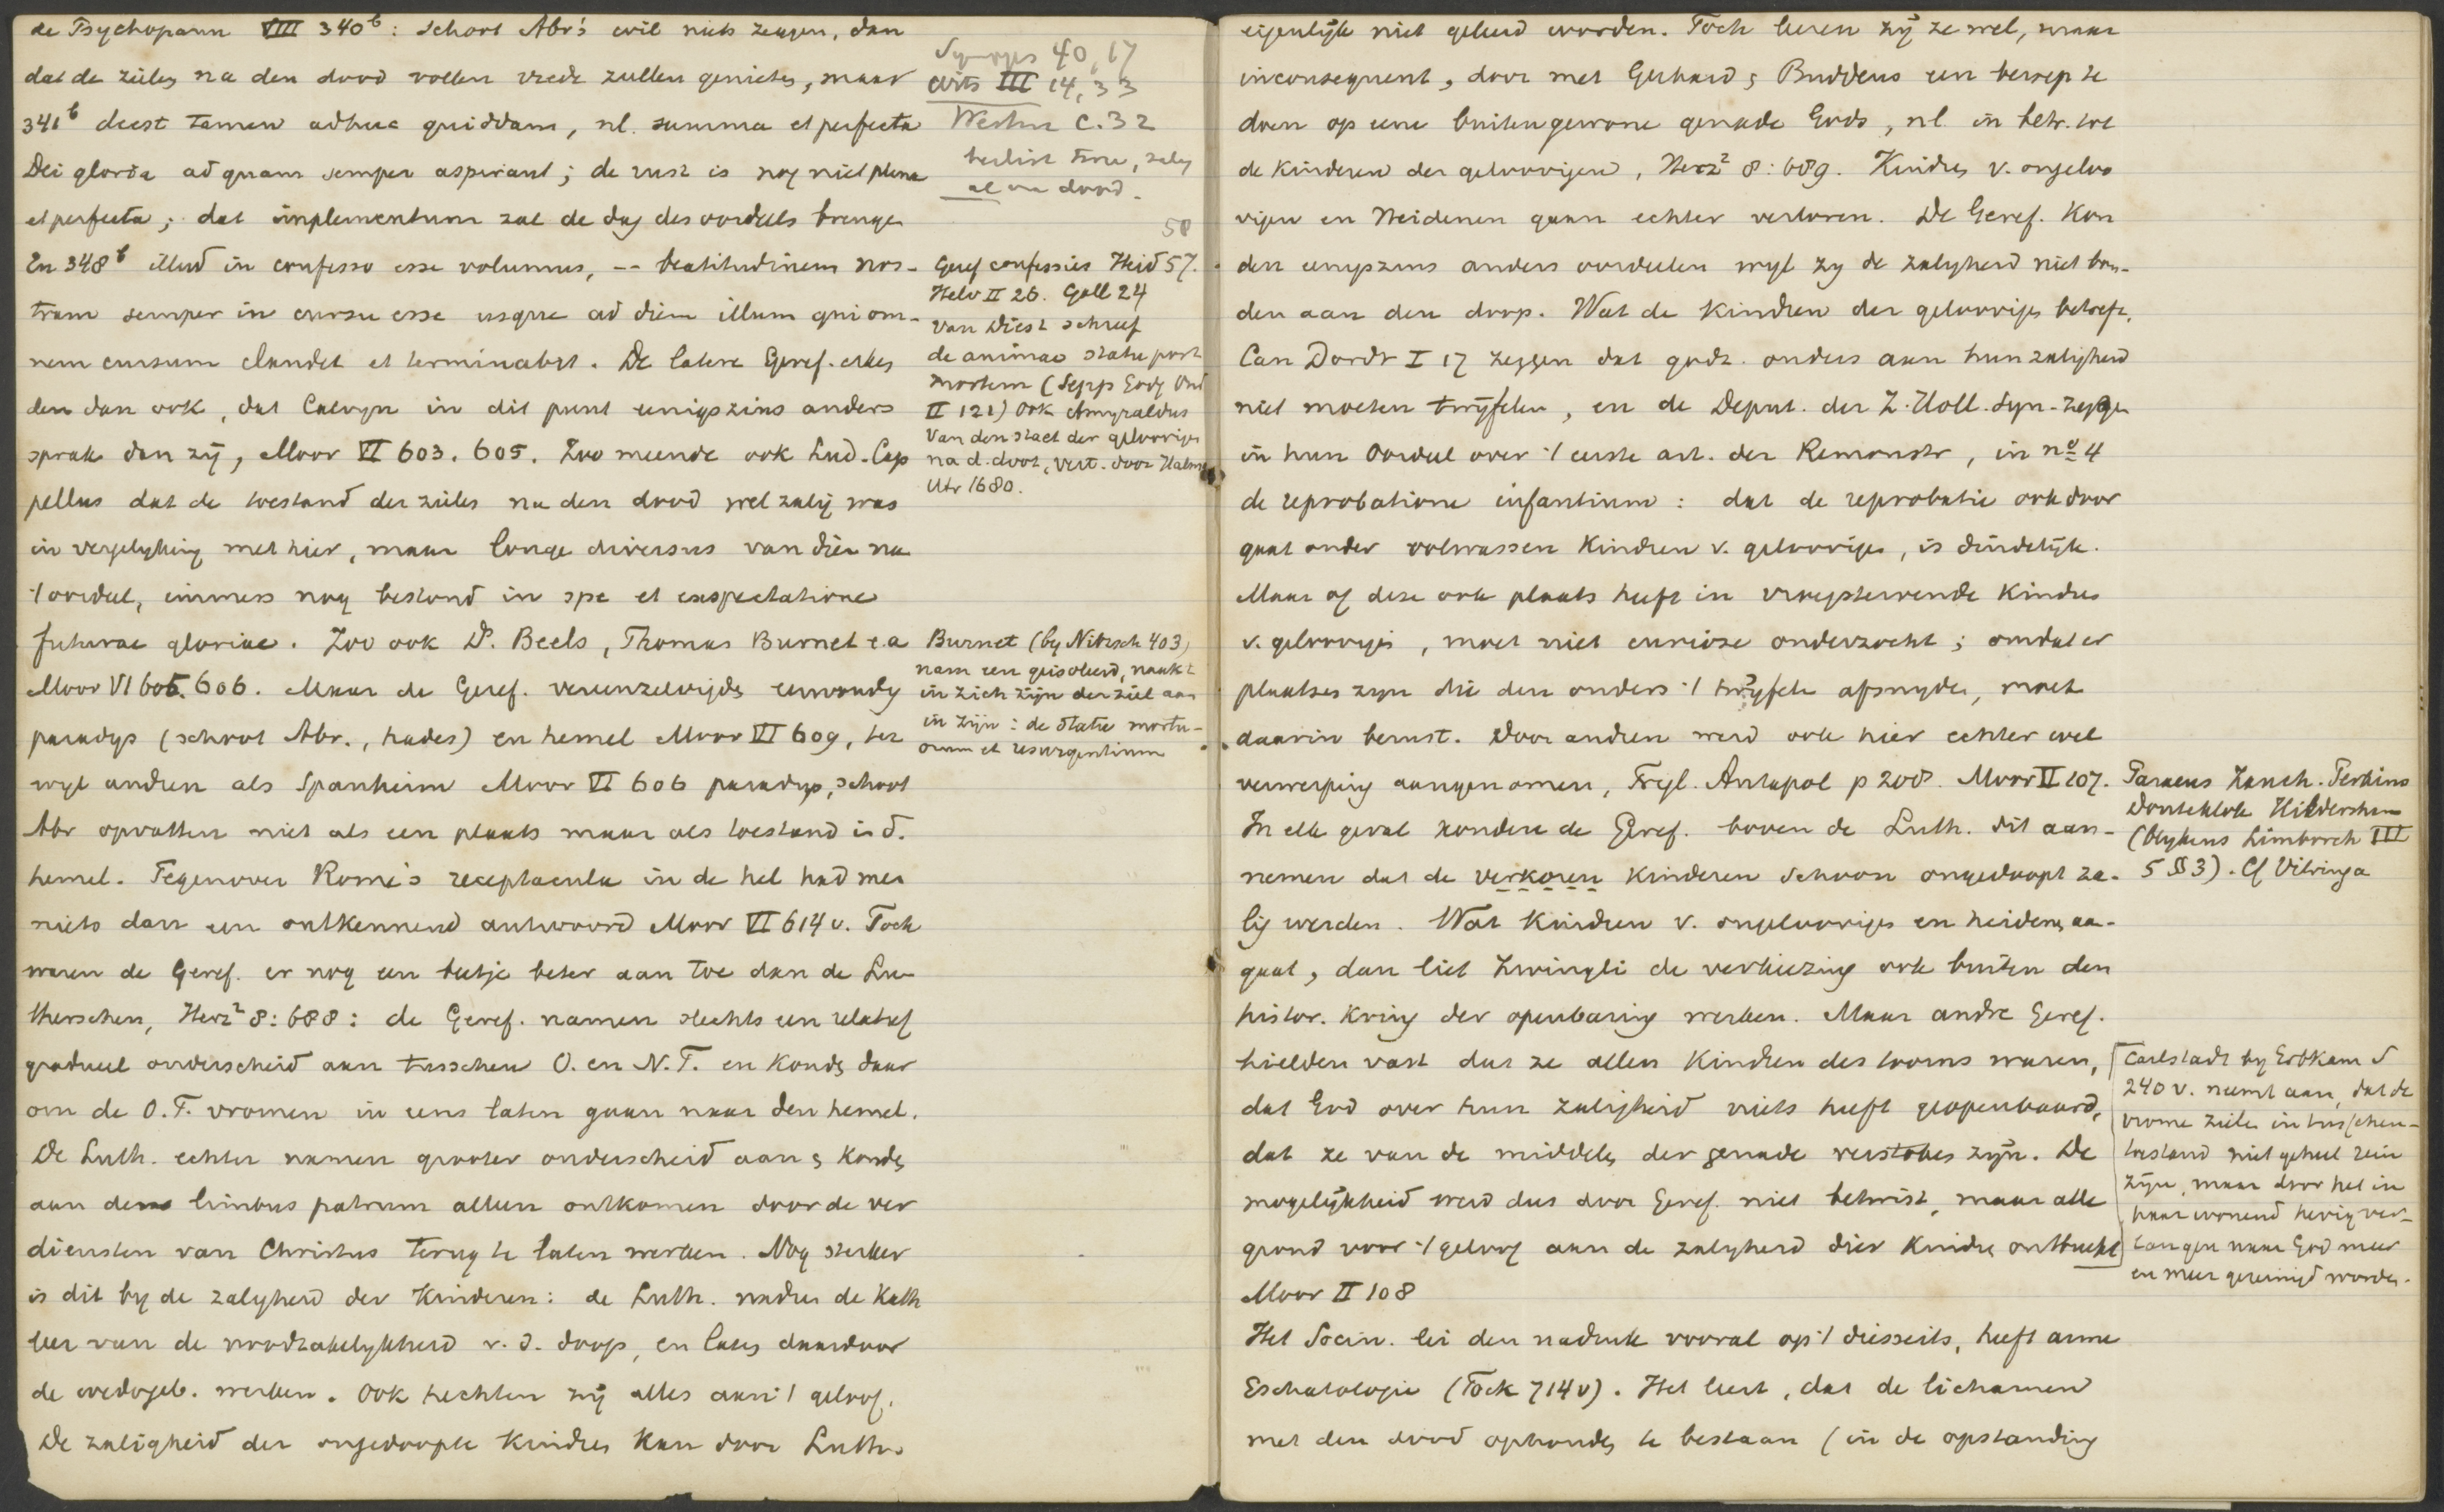 de Psychopann VIII 340b: schoot Abr's wil niets zeggen, dan
dat de zielen na den dood vollen vrede zullen genieten, maar
341b deest tamen adhuc quiddam, nl. summa et perfecta
Dei gloria ad quam semper aspirant; de rust is nog niet plena
et perfecta; dat implementum zal de dag des oordeels brengen
En 348b illud in confesso esse volumus, -- beatitudinem nos-
tram semper in cursu esse usque ad diem illum qui om-
nem cursum claudet et terminabit. De latere Geref. erken
den dan ook, dat Calvyn in dit punt eenigszins anders
sprak dan zij, Moor VI 603. 605. Zoo meende ook Lud. Cap
pellus dat de toestand der zielen na den dood wel zalig was
in vergelyking met hier, maar longe diversus van dien na
't oordeel, immers nog bestond in spe et exspectatione
futurae gloriae. Zoo ook D. Beels, Thomas Burnet e.a
Moor VI 605. 606. Maar de Geref. vereenzelvigden eenvoudig
paradys (schoot Abr., hades) en hemel Moor VI 609, ter
wyl andren als Spanheim Moor VI 606 paradys, schoot
Abr opvatten niet als een plaats maar als toestand in d.
hemel. Tegenover Rome's receptacula in de hel had men
niets dan een ontkennend antwoord Moor VI 614 v. Toch
waren de Geref. er nog een beetje beter aan toe dan de Lu-
therschen, Herz2 8:688: de Geref. namen slechts een relatief
gradueel onderscheid aan tusschen O. en N.T. en konden daar
om de O.T. vromen in eens laten gaan naar den hemel.
De Luth. echter namen grooter onderscheid aan & konden
aan den limbus patrum alleen ontkomen door de ver
diensten van Christus terug te laten werken. Nog sterker
is dit by de zalyheid der kinderen: de Luth. nadren de Kath
leer van de noodzakelykheid v. d. doop, en laten daardoor
de wedergeb. werken. Ook hechten zij alles aan 't geloof.
De zaligheid der ongedoopte kindren kan door Luth.
Synopsis 40,17
Wits III 14, 33
Westm C. 32
al na dood.
58
Geref confessies Heid 57.
Helv II 26. Gall 24
van Diest schreef
de animae statu post
mortem (Sepp Godg Ond
II 121) Ook Amyraldus
Van den staet der gelovigen
na d. doot, vert. door Halma
Utr 1680.
Burnet (by Nitzsch 403)
nam een geisoleerd, naakt
in zich zijn der ziel aan
in zijn: de statu mortu-
orum et resurgentium
eigenlijk niet geleerd worden. Toch leeren zij ze wel, maar
inconsequent, door met Gerhard & Buddeus een beroep te
doen op eene buitengewone genade Gods, nl. in betr. tot
de kinderen der geloovigen, Herz2 8:689. Kindren v. ongeloo
vigen en Heidenen gaan echter verloren. De Geref. kon
den eenigszins anders oordeelen wyl zy de zalygheid niet bon-
den aan den doop. Wat de kindren der geloovigen betreft,
Can Dordr I 17 zeggen dat godz. ouders aan hun zaligheid
niet moeten twijfelen, en de Deput. der Z. Holl. Syn. zeggen
in hun Oordeel over 't eerste art. der Remonstr, in no 4
de reprobatione infantium: dat de reprobatie ook door
gaat onder volwassen kindren v. geloovigen, is duidelijk.
Maar of deze ook plaats heeft in vroegstervende kindren
v. geloovigen, moet niet curieuse onderzocht; omdat er
plaatsen zyn die den ouders 't twijfelen afsnyden, moet
daarin berust. Door andren werd ook hier echter wel
verwerping aangenomen, Trigl. Antapol p 208. Moor II 107.
In elk geval konden de Geref. boven de Luth. dit aan-
nemen dat de verkoren kinderen schoon ongedoopt za-
lig werden. Wat kindren v. ongeloovigen en heidenen aan-
gaat, dan liet Zwingli de verkiezing ook buiten den
histor. kring der openbaring werken. Maar andre Geref.
hielden vast dat ze allen kindren des toorns waren,
dat God over hun zaligheid niets heeft geopenbaard,
dat ze van de middelen der genade verstoken zijn. De
mogelijkheid werd dus door Geref. niet betwist, maar alle
grond voor 't geloof aan de zalygheid dier kindren ontbreekt
Moor II 108
Het Socin. lei den nadruk vooral op 't diesseits, heeft arme
Eschatologie (Fock 714v). Het leert, dat de lichamen
met den dood ophouden te bestaan (in de opstanding
Paraeus Zanch. Perkins
Donteklok Hildersham
(blykens Limborch III
5 § 3). Cf Vitringa
Carlstadt by Erbkam S
240 v. neemt aan, dat de
vrome zielen in tusschen-
toestand niet geheel rein
zijn, maar door het in
haar wonend hevig ver-
langen naar God meer
en meer gereinigd worden.